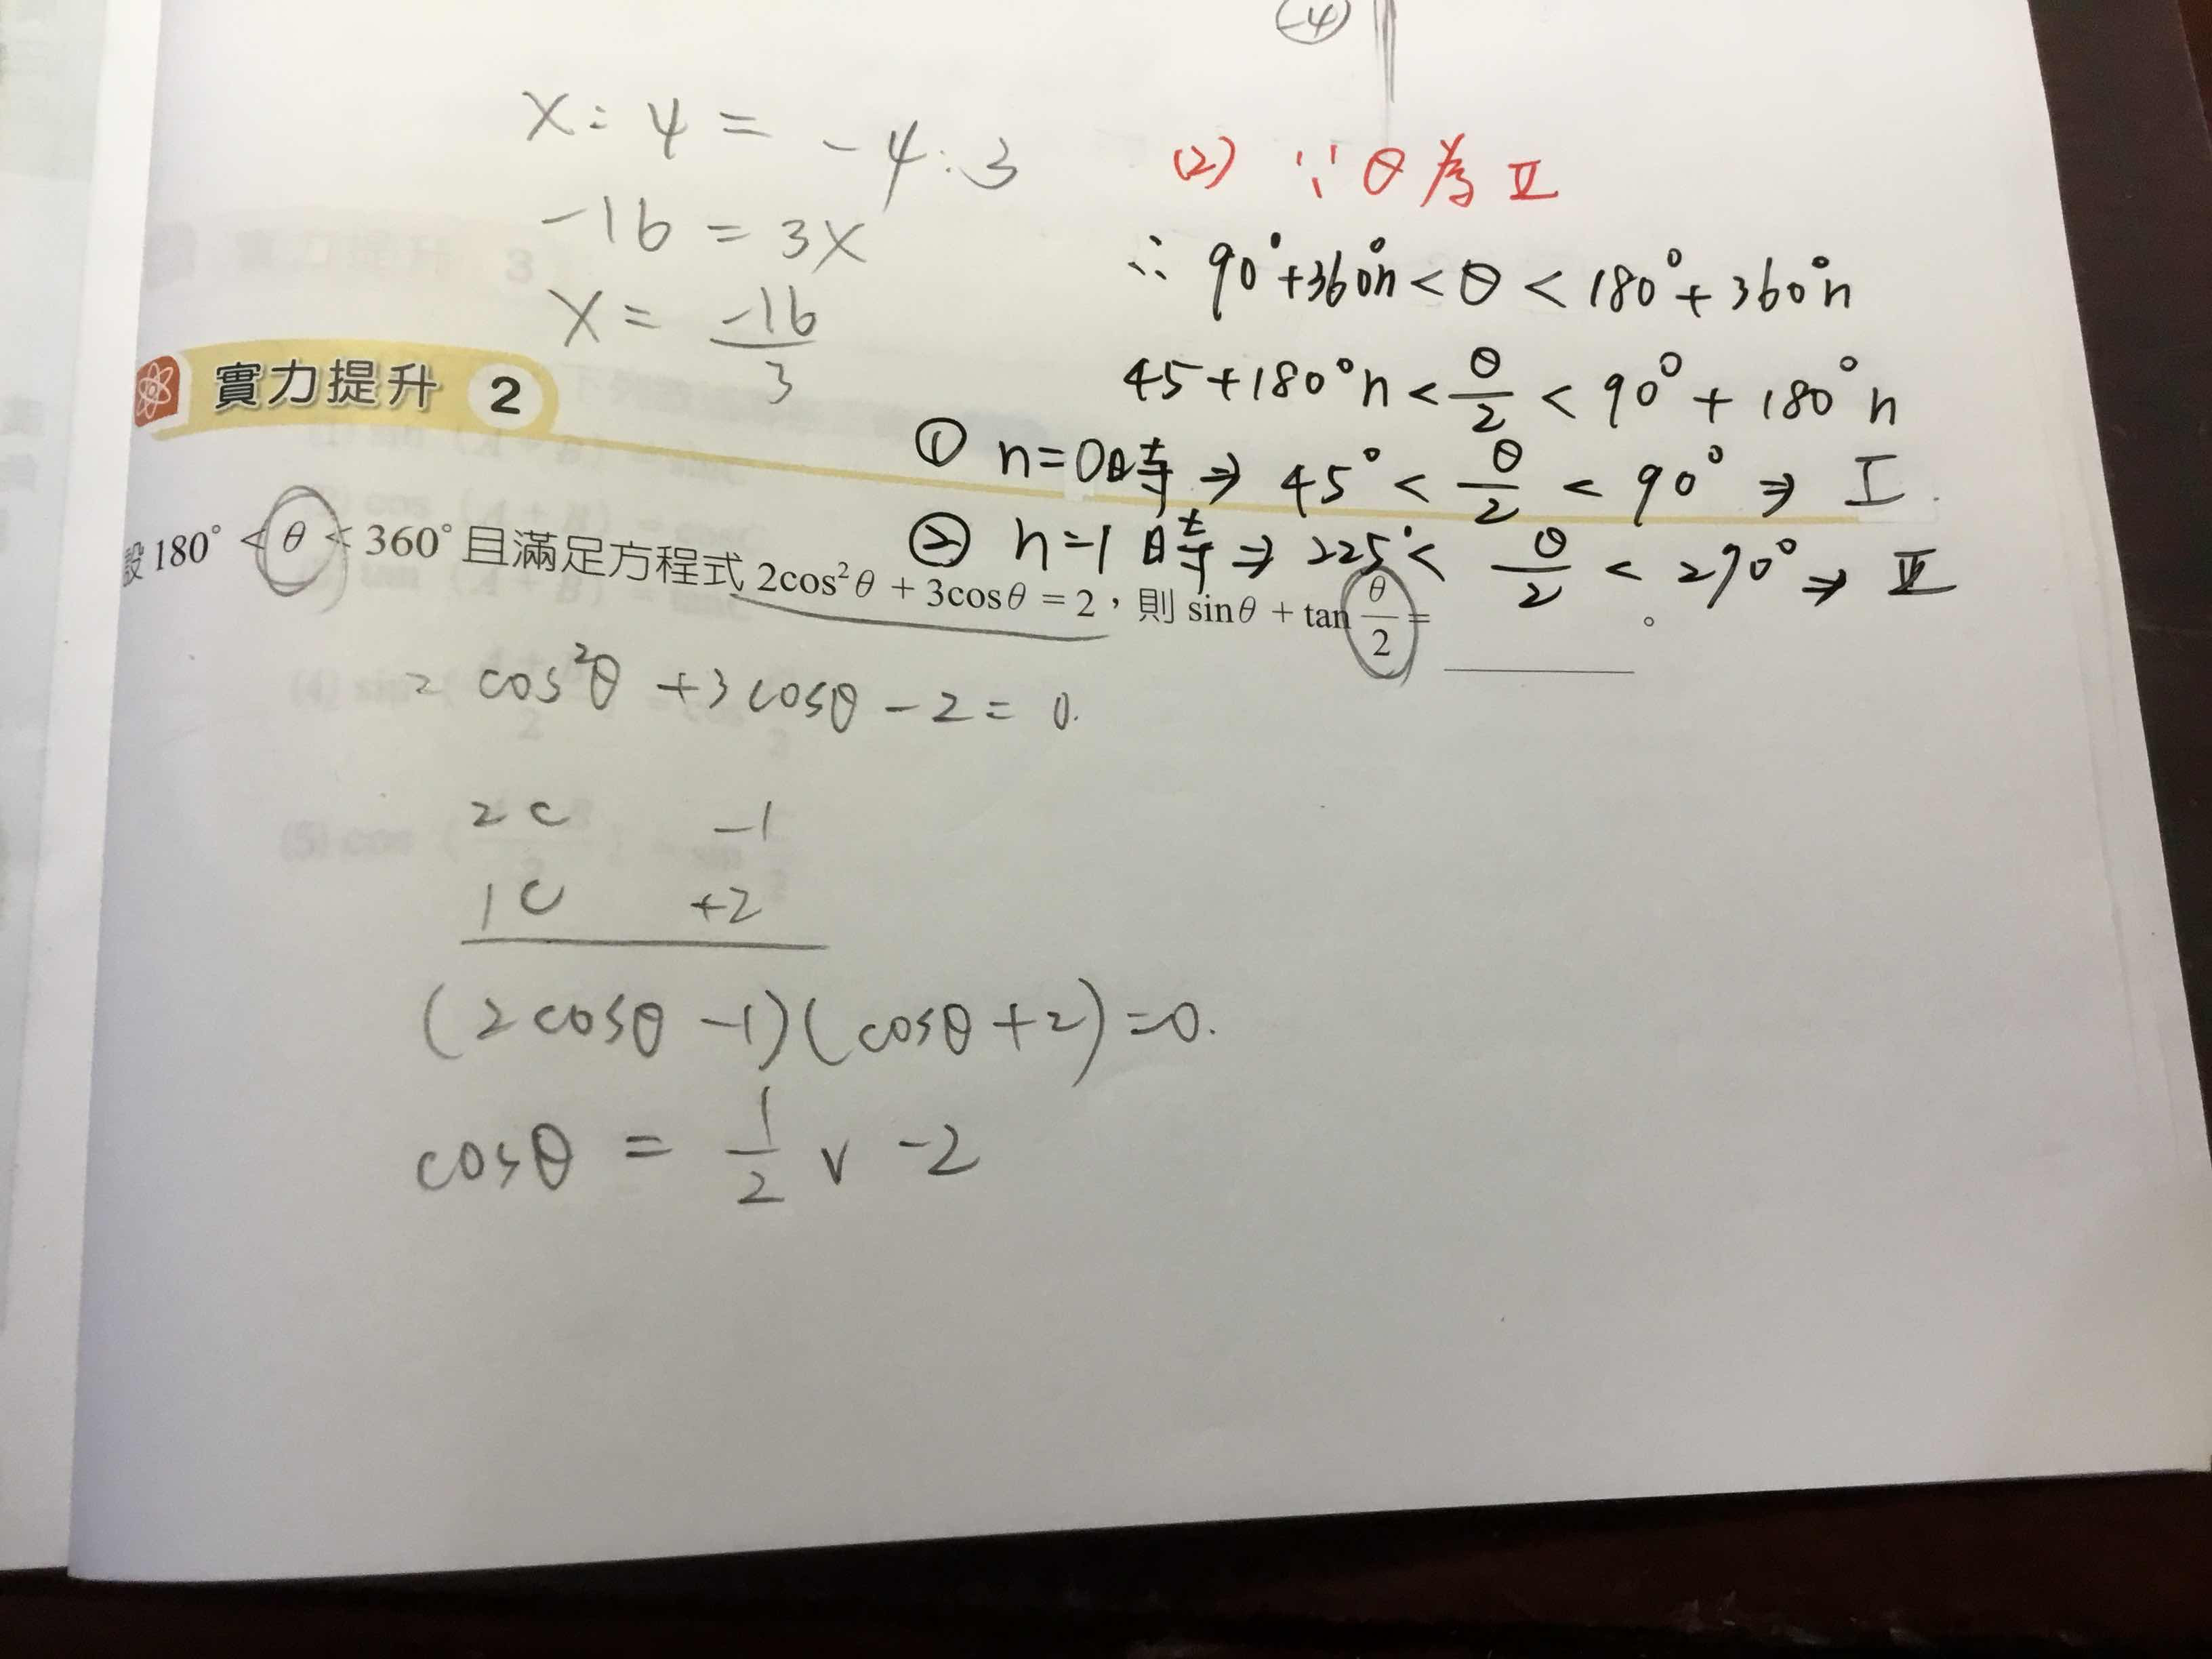 (-4)
x : 4 = -4 : 3
-16 = 3x
x = -16/3
(2) ∵ θ 為 Ⅱ
∴ 90°+360°n < θ < 180°+360°n
45+180°n < θ/2 < 90°+180°n
① n=0時 ⇒ 45° < θ/2 < 90° ⇒ Ⅰ
② n=1時 ⇒ 225° < θ/2 < 270° ⇒ Ⅲ
實力提升 2
設 180° < θ < 360° 且滿足方程式 2cos²θ + 3cosθ = 2，則 sinθ + tan θ/2 = ______。
2 cos²θ + 3cosθ - 2 = 0.
2c -1
1c +2
(2cosθ -1)(cosθ +2) = 0.
cosθ = 1/2 ∨ -2